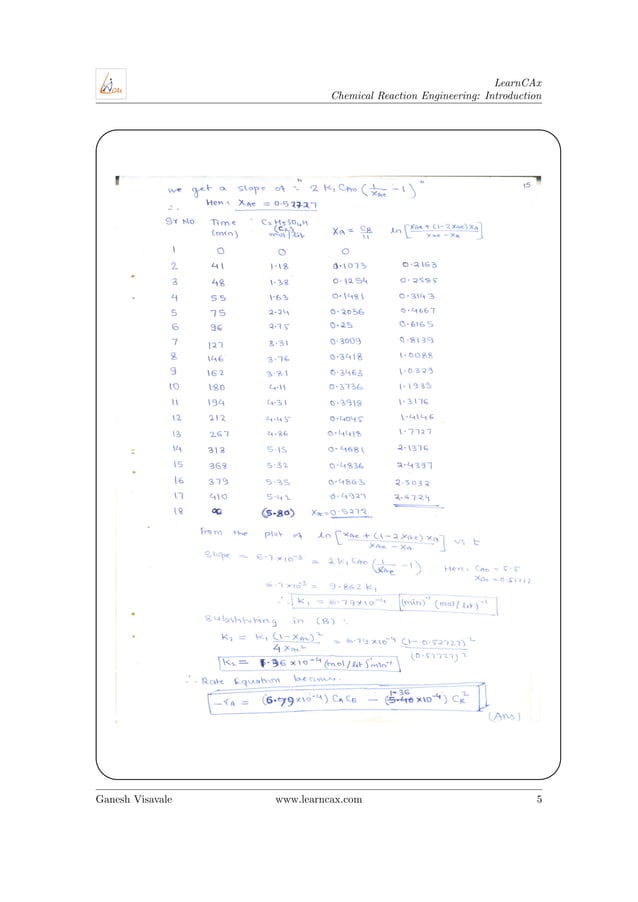 LearnCAx
Chemical Reaction Engineering: Introduction
15
we get a slope of :- "2 K₁ CAo (1/XAe - 1)"
∴ Hen: XAe = 0.52727
Sr No Time (min) C₂H₅SO₄H (CR) mol/lit XA = CR/11 ln [XAe + (1-2XAe)XA / XAe - XA]
1 0 0 0
2 41 1.18 0.1073 0.2163
3 48 1.38 0.1254 0.2585
4 55 1.63 0.1481 0.3143
5 75 2.24 0.2036 0.4667
6 96 2.75 0.25 0.6165
7 127 3.31 0.3009 0.8139
8 146 3.76 0.3418 1.0088
9 162 3.81 0.3463 1.0329
10 180 4.11 0.3736 1.1935
11 194 4.31 0.3918 1.3176
12 212 4.45 0.4045 1.4146
13 267 4.86 0.4418 1.7727
14 313 5.15 0.4681 2.1376
15 368 5.32 0.4836 2.4397
16 379 5.35 0.4863 2.5032
17 410 5.42 0.4927 2.6724
18 ∞ (5.80) XA=0.5272
from the plot of ln [XAe + (1-2XAe)XA / XAe - XA] vs t
Slope = 6.7×10⁻³ = 2 K₁ CAo (1/XAe - 1) Hen: CAo = 5.5
XAe = 0.52727
6.7×10⁻³ = 9.862 K₁
∴ K₁ = 6.79×10⁻⁴ (min)⁻¹ (mol/lit)⁻¹
Substituting in (B) :
K₂ = K₁ (1-XAe)² / 4 XAe² = 6.79×10⁻⁴ (1-0.52727)² / (0.52727)²
K₂ = 1.36 ×10⁻⁴ (mol/lit)⁻¹ min⁻¹
∴ Rate Equation becomes.
1.36
-rA = (6.79×10⁻⁴) CA CB - (5.46 ×10⁻⁴) CR²
(Ans)
Ganesh Visavale www.learncax.com 5